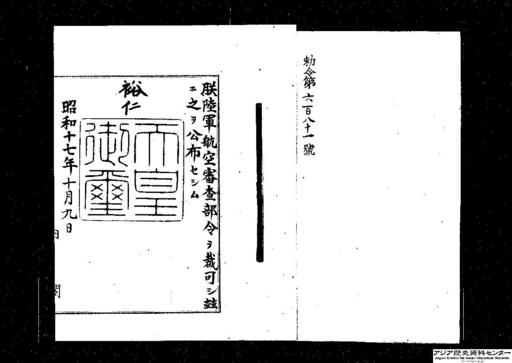 勅令第六百八十一號
朕陸軍航空審査部令ヲ裁可シ玆
ニ之ヲ公布セシム
裕仁
天皇御璽
昭和十七年十月九日
内閣
アジア歴史資料センター
Japan Center for Asian Historical Records